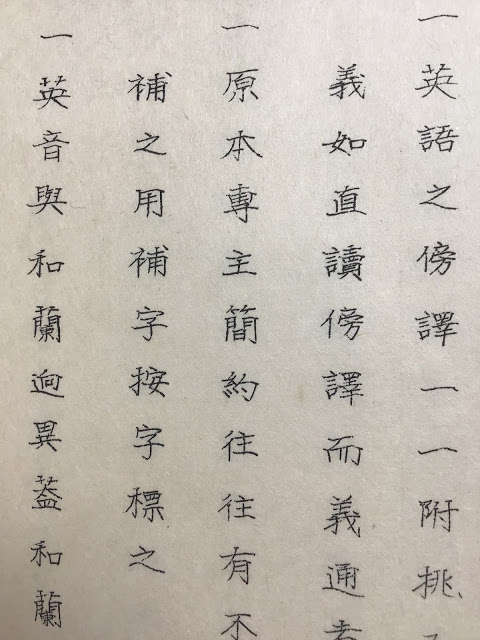 一英語之傍譯一一附挑
義如直讀傍譯而義通者
一原本專主簡約往往有不
補之用補字按字標之
一英音與和蘭逈異葢和蘭